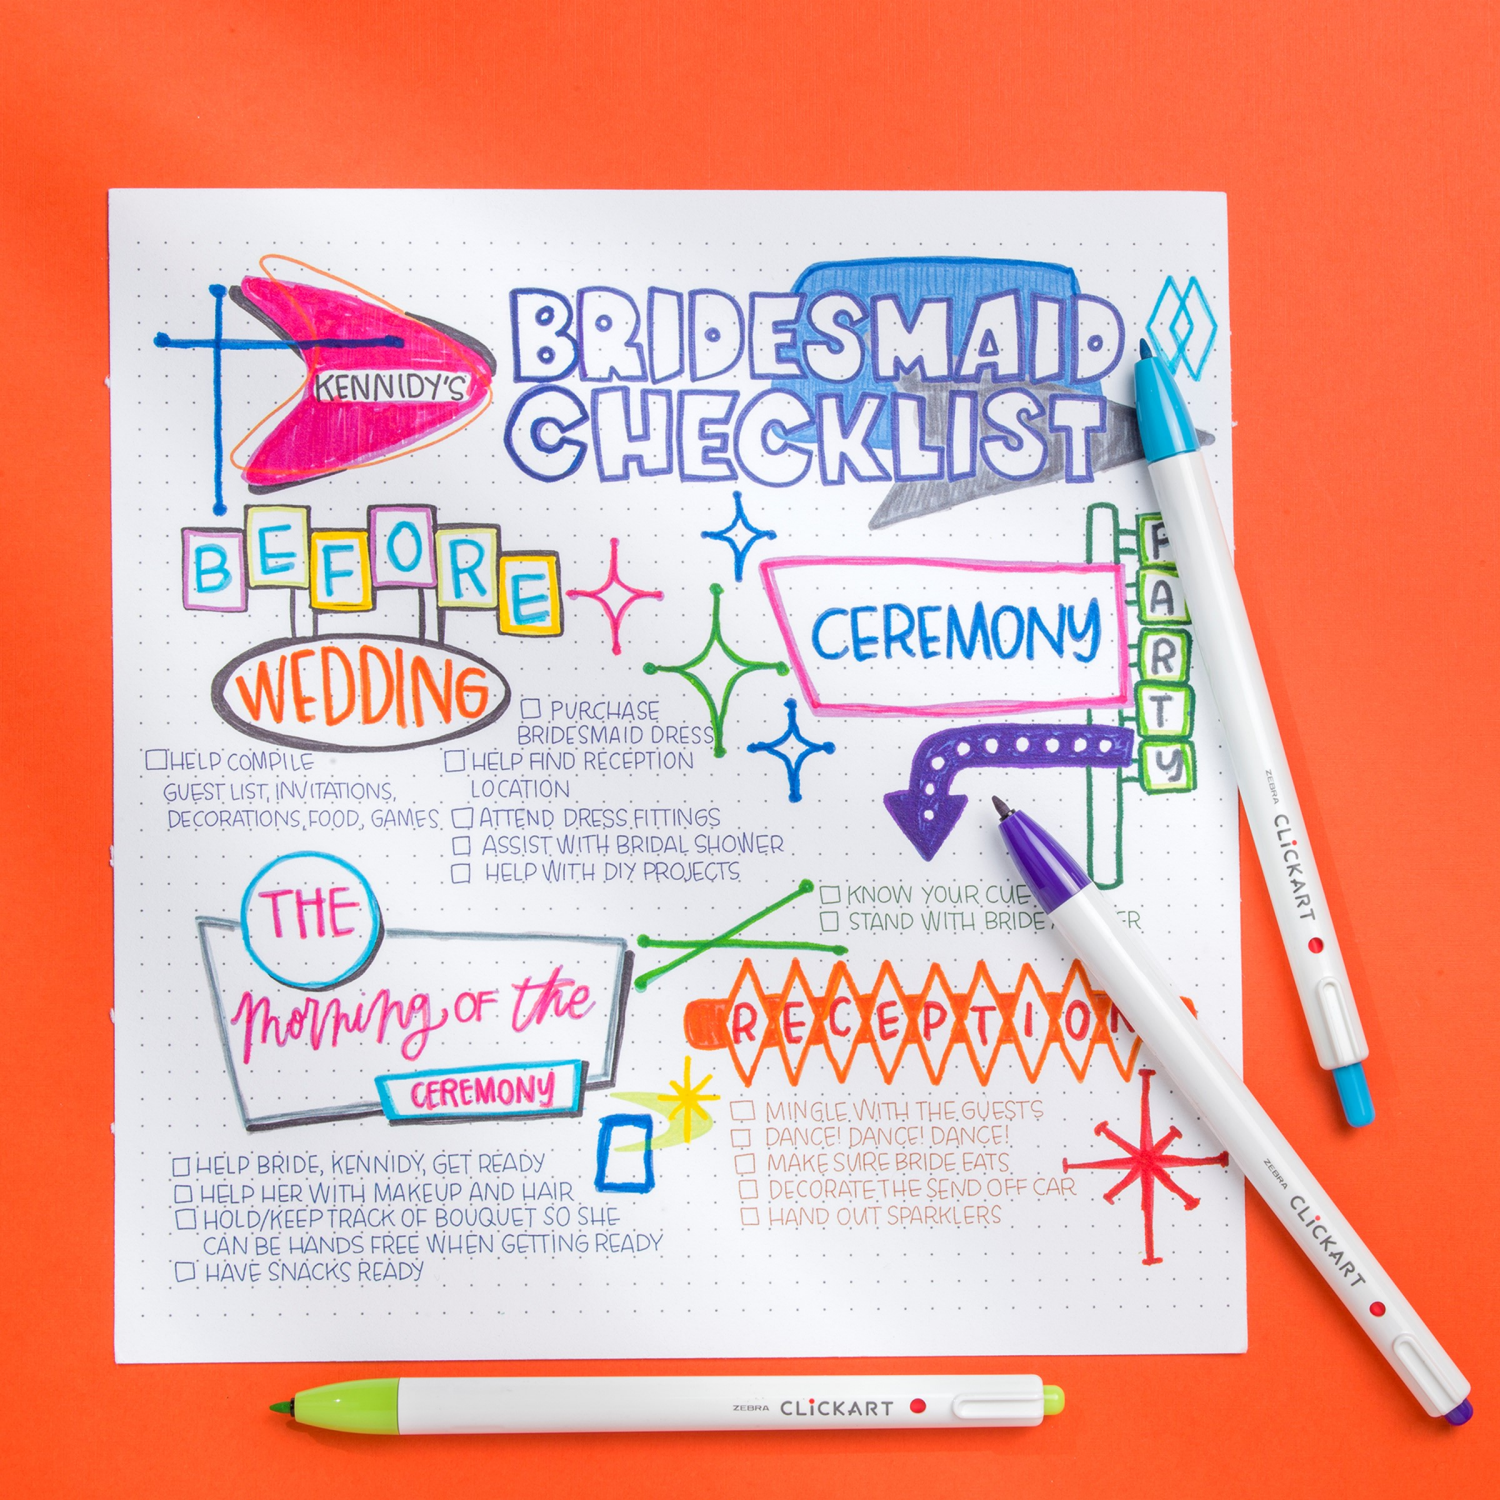 KENNIDY'S
BRIDESMAID
CHECKLIST
BEFORE
WEDDING
☐ PURCHASE
BRIDESMAID DRESS
☐ HELP COMPILE
GUEST LIST, INVITATIONS,
DECORATIONS, FOOD, GAMES
☐ HELP FIND RECEPTION
LOCATION
☐ ATTEND DRESS FITTINGS
☐ ASSIST WITH BRIDAL SHOWER
☐ HELP WITH DIY PROJECTS
CEREMONY
PARTY
☐ KNOW YOUR CUE
☐ STAND WITH BRIDE
THE
morning OF the
CEREMONY
☐ HELP BRIDE, KENNIDY, GET READY
☐ HELP HER WITH MAKEUP AND HAIR
☐ HOLD/KEEP TRACK OF BOUQUET SO SHE
CAN BE HANDS FREE WHEN GETTING READY
☐ HAVE SNACKS READY
RECEPTION
☐ MINGLE WITH THE GUESTS
☐ DANCE! DANCE! DANCE!
☐ MAKE SURE BRIDE EATS
☐ DECORATE THE SEND OFF CAR
☐ HAND OUT SPARKLERS
ZEBRA CLiCKART
ZEBRA CLiCKART
ZEBRA CLiCKART